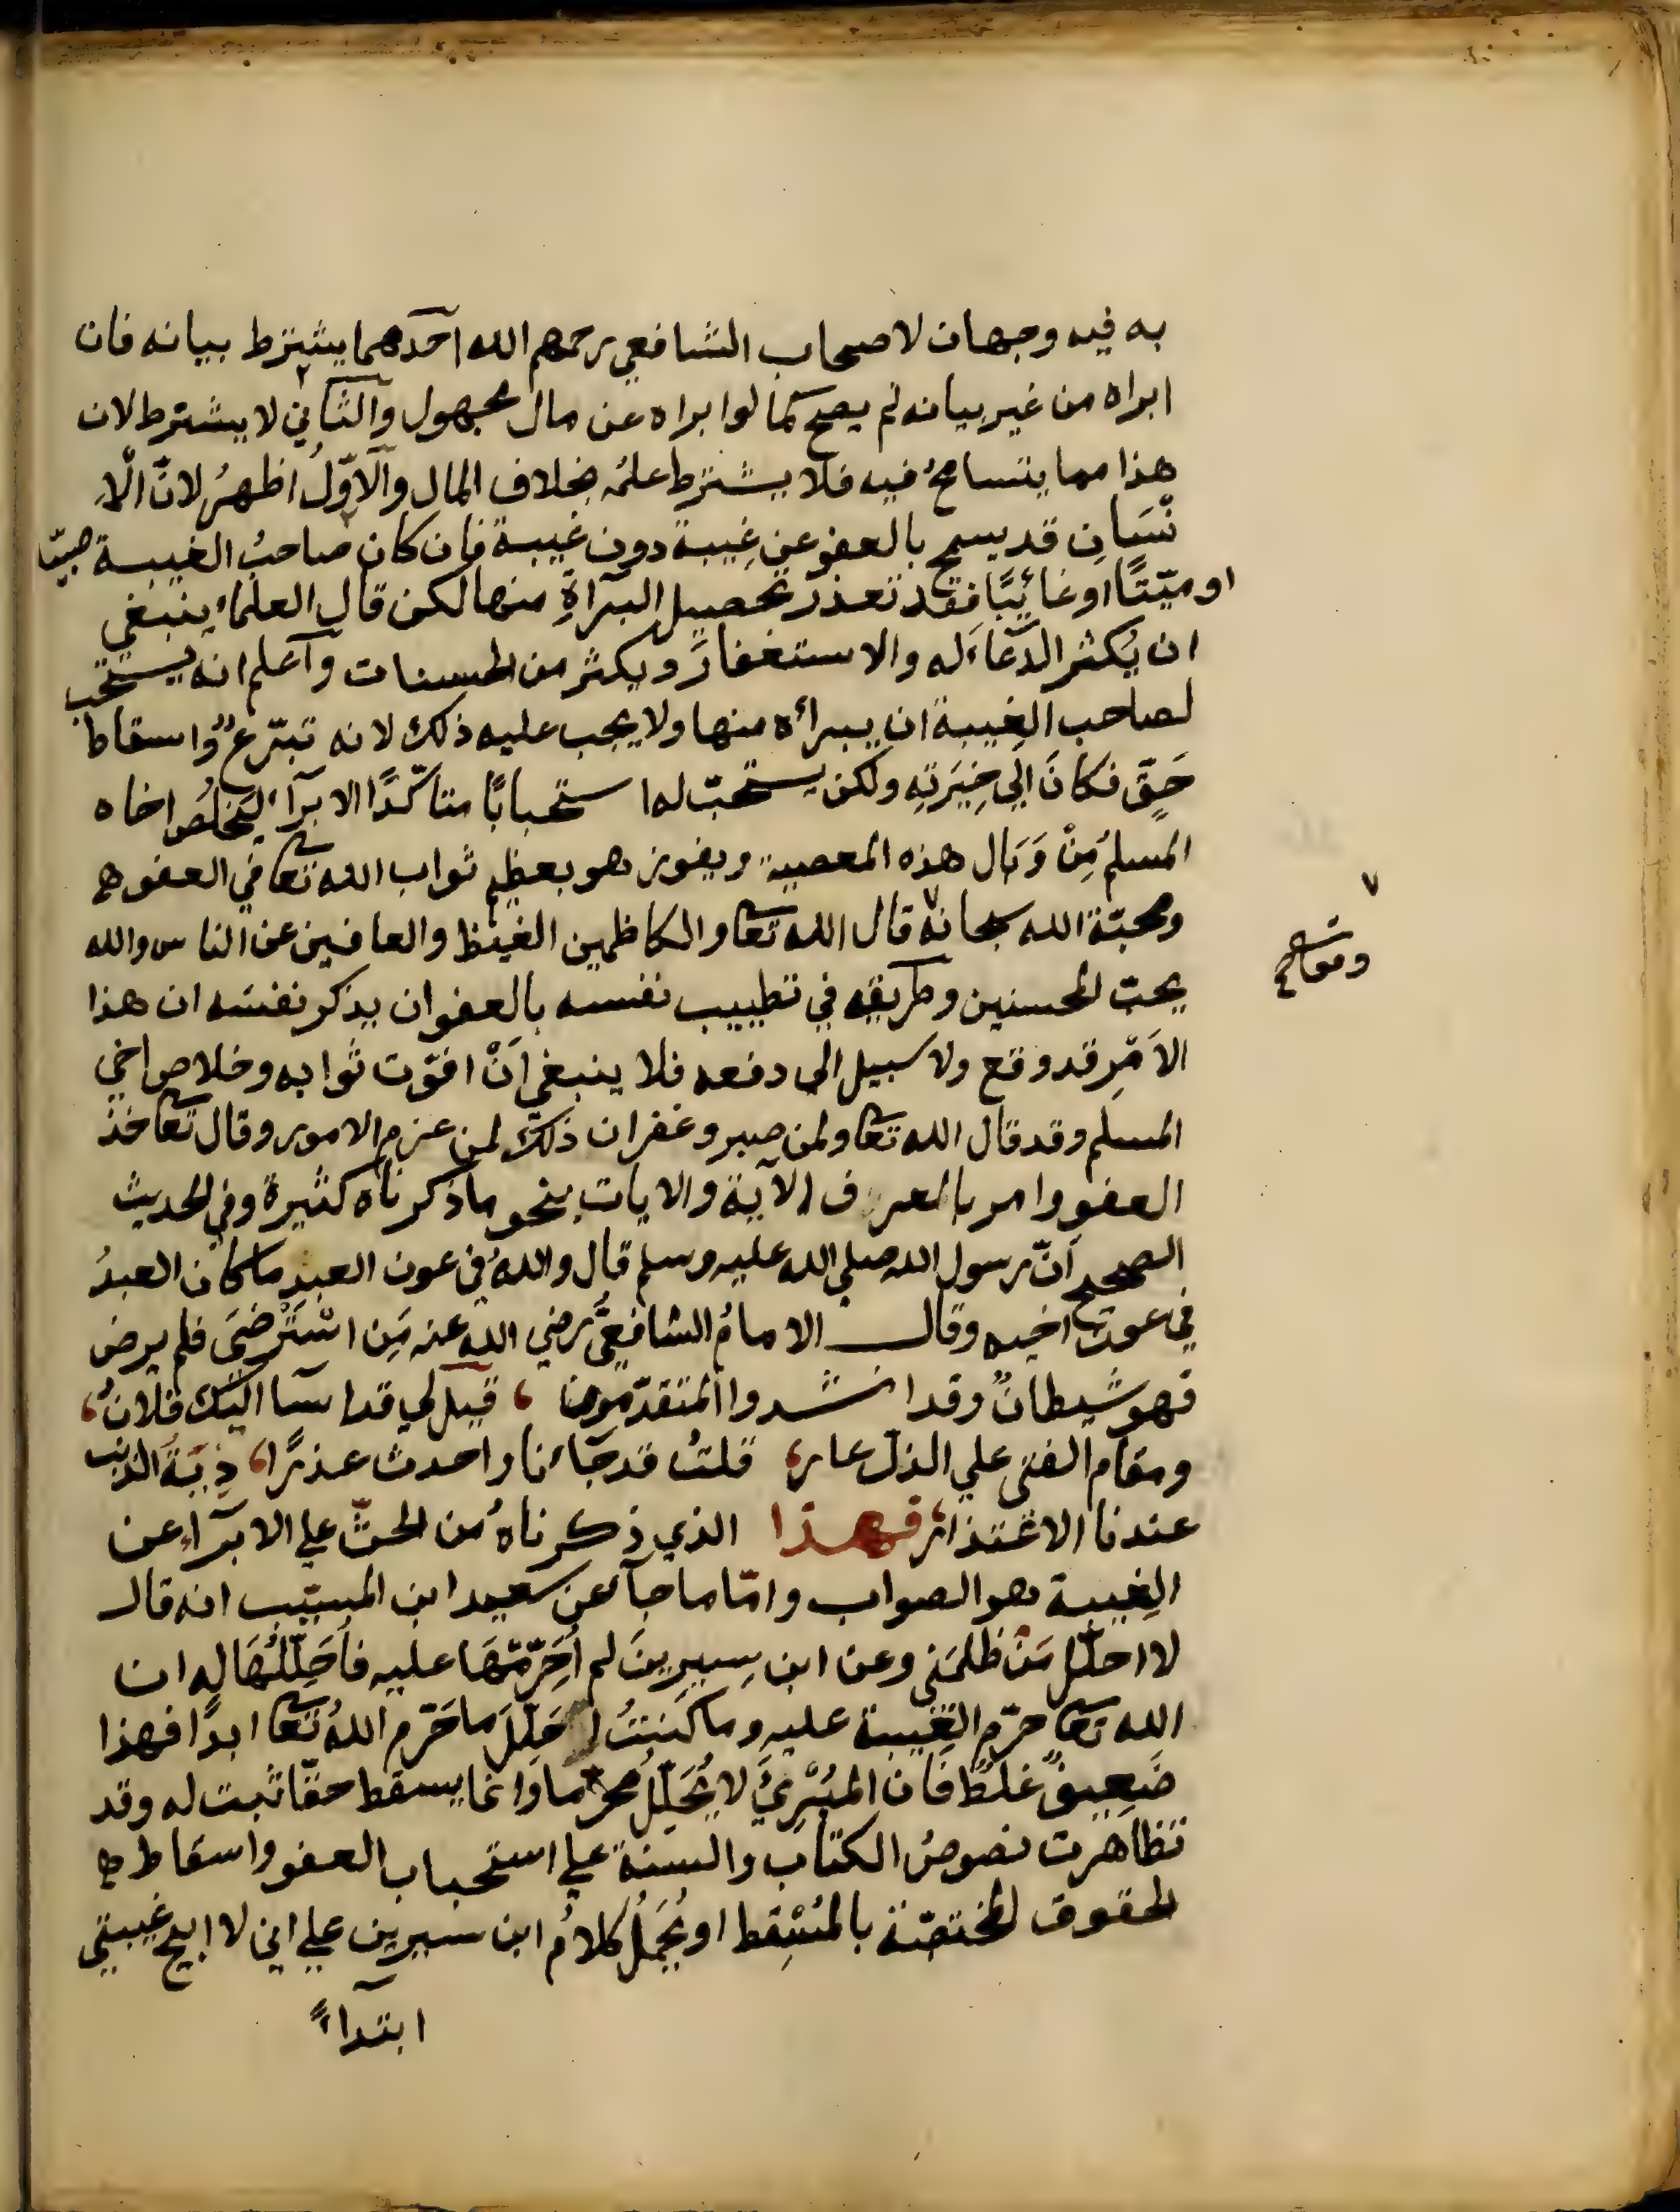 به فيه وجهان لاصحاب الشافعي رحمهم الله احدهما يشترط بيانه فان
ابراه من غير بيانه لم يصح كما لو ابراه عن مال مجهول والثاني لا يشترط لان
هذا مما يتسامحُ فيه فلا يشترط علمُه بخلاف المال والاوّلُ اظهرُ لانّ الْاِ
نْسَانِ قد يسمح بالعفو عن غِيبة دون غيبة فان كان صاحبُ الغيبة صبيّا
او ميّتًا او غائِبًا فقد تعذر تحصيل البرآةِ منها لكن قال العلماء ينبغي
ان يُكثر الدعاءَ له والاستغفارَ ويكثر من الحسنات وآعلم انه يستحب
لصاحب الغِيبة ان يبرائه منها ولا يجب عليه ذلك لانه تبرّعٌ واسقاط
حَقٍّ فكانَ الِى خِيَرَتِهِ ولكن يستحبّ له استحبابًا متاكّدًا الابرآء ليخلُصَ اخاه
المسلم مِنْ وَبَال هذه المعصية ويفوز هو بعظيم ثواب الله تعا في العفو
ومحبّة الله سبحانه قال الله تعا والكاظمين الغيظ والعافين عن الناس والله
يحبّ المحسنين وطريقه في تطييب نفسه بالعفو ان يذكر نفسَه ان هذا
الاَمْرِ قد وقع ولا سبيل الى دفعه فلا ينبغي اَنْ افوّت ثوابه وخلاص اخي
المسلم وقد قال الله تعا ولمن صبر وغفر ان ذلك لمن عزم الامور وقال تعا خذ
العفو وامر بالعرف الآية والايات بنحو ما ذكرناه كثيرة وفي الحديث
الصحيح اَنّ رسول الله صلي الله عليه وسلم قال واللهُ في عون العبدِ ما كان العبدُ
في عون اخيه وقال الامامُ الشافعيُّ رضي الله عنه مَنِ اسْتُرْضِيَ فلم يرض
فهو شيطانٌ وقد انشدوا المتقدّمون، قيل لي قد اسآ اليك فلانٌ،
ومقام الفتى علي الذل عار، قلتُ قد جآءنا واحدث عذرًا، دِيَةُ الذنب
عندنا الاعتذار، فهذا الذي ذكرناهُ من الحثّ علي الابرآء عن
الغِيبة هو الصواب وامّا ما جآ عن سعيد ابن المسيّب انه قال
لا احلّل مَنْ ظلمَني وعن ابن سِيرِينَ لم اُحَرِّمْهَا عليه فاُحَلِّلُهَا له ان
الله تعا حرّم الغيبة عليه وما كنتُ لاحَلّلَ ما حَرّم اللهُ تعا ابدًا فهذا
ضَعِيفٌ غلطٌ فان المبْرِئَ لا يُحَلّلُ محرّما وانما يسقط حقّا ثبت له وقد
تظاهرت نصوصُ الكتاب والسنة علي استحباب العفو واسقاط
الحقوق المختصّة بالمُسْقِط او يُحمَلُ كلامُ ابن سيرين علي اني لا ابيح غيبتي
ابتدآءً